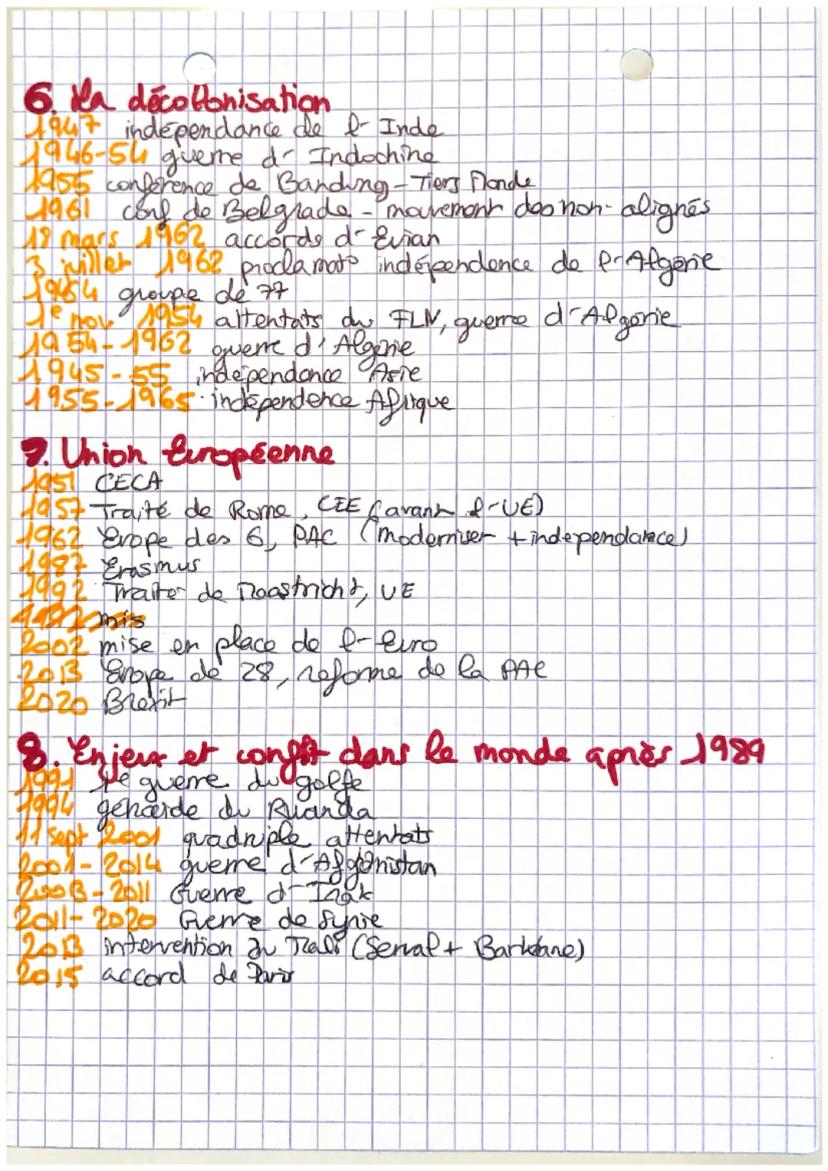 6. La décolonisation
1947 indépendance de l'Inde
1946-54 guerre d'Indochine
1955 conférence de Bandung - Tiers Monde
1961 conf de Belgrade - mouvement des non-alignés
18 mars 1962 accords d'Evian
3 juillet 1962 proclamat° indépendance de l'Algérie
1964 groupe de 77
1e nov 1954 attentats du FLN, guerre d'Algérie
1954-1962 guerre d'Algérie
1945-55 indépendance Asie
1955-1965 indépendence Afrique
7. Union Européenne
1951 CECA
1957 Traité de Rome, CEE (avant l'UE)
1962 Erope des 6, PAC (moderniser + independance)
1987 Erasmus
1992 Traiter de Maastricht, UE
1992 mis
2002 mise en place de l'euro
2013 Erope de 28, reforme de la PAC
2020 Brexit
8. Enjeux et conflit dans le monde après 1989
1991 1e guerre du golfe
1994 génocide du Rwanda
11 sept 2001 quadruple attentats
2001-2014 guerre d'Afghanistan
2003-2011 Guerre d'Irak
2011-2020 Guerre de Syrie
2013 intervention au Mali (Serval + Barkhane)
2015 accord de Paris